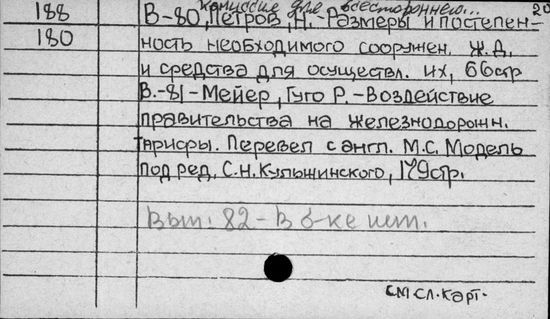 комиссия для всестороннего... 20
188 В-80, Петров, Н.-Размеры и постепен-
180 ность необходимого сооружен. Ж.Д.
и средства для осуществл. их, 66стр
В.-81-Мейер, Гуго Р.-Воздействие
правительства на железнодорожн.
тарифы. Перевел с англ. М.С. Модель
под ред. С.Н. Кульшинского, 179стр.
Вып. 82-В б-ке нет.
см сл. карт.